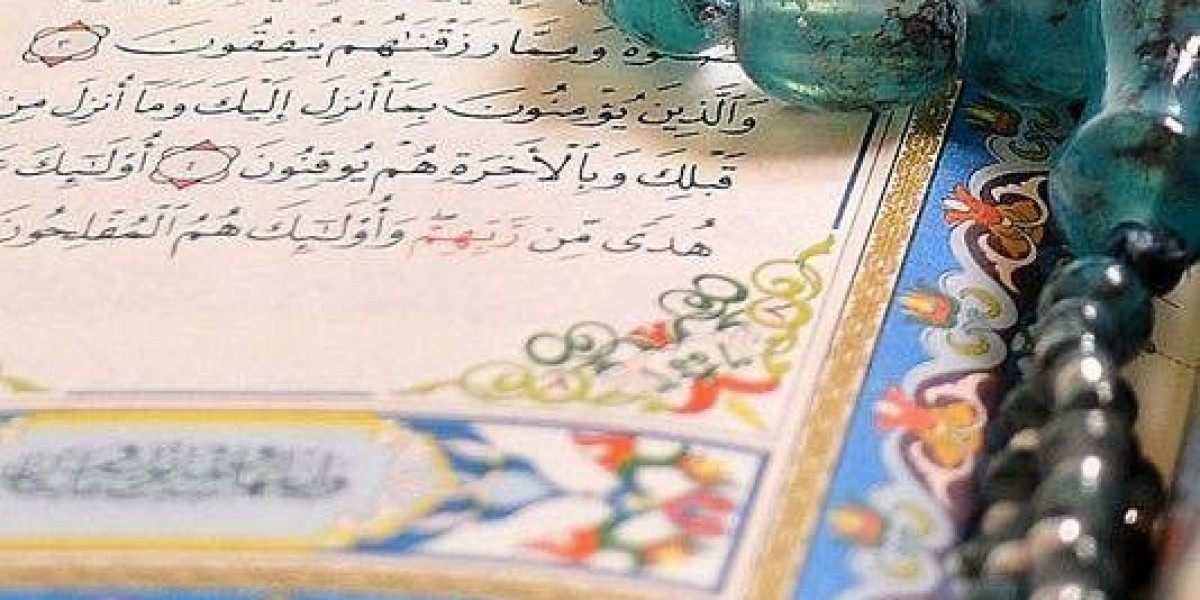 وَمِمَّا رَزَقْنَاهُمْ يُنفِقُونَ ٣
وَالَّذِينَ يُؤْمِنُونَ بِمَا أُنزِلَ إِلَيْكَ وَمَا أُنزِلَ مِن
قَبْلِكَ وَبِالْأَخِرَةِ هُمْ يُوقِنُونَ ٤ أُوْلَٰئِكَ
هُدًى مِّن رَّبِّهِمْ وَأُوْلَٰئِكَ هُمُ الْمُفْلِحُونَ